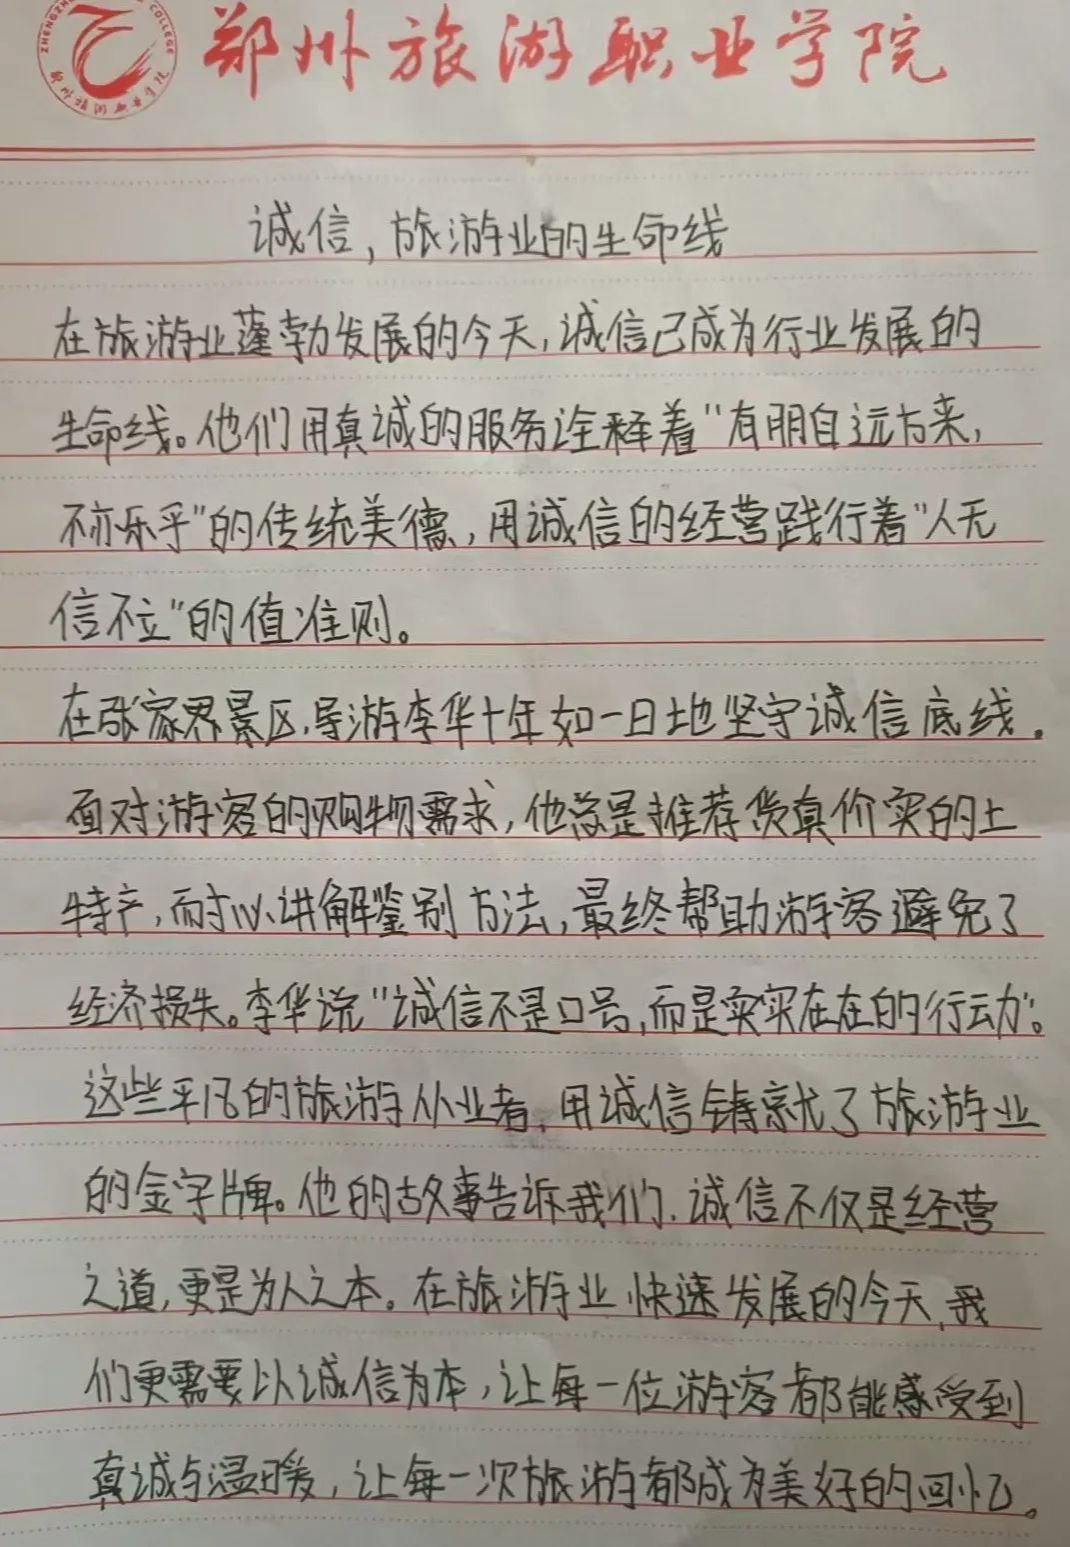 郑州旅游职业学院
诚信，旅游业的生命线
在旅游业蓬勃发展的今天，诚信已成为行业发展的
生命线。他们用真诚的服务诠释着"有朋自远方来，
不亦乐乎"的传统美德，用诚信的经营践行着"人无
信不立"的值准则。
在张家界景区，导游李华十年如一日地坚守诚信底线．
面对游客的购物需求，他总是推荐货真价实的土
特产，耐心讲解鉴别方法，最终帮助游客避免了
经济损失。李华说"诚信不是口号，而是实实在在的行动"。
这些平凡的旅游从业者，用诚信铸就了旅游业
的金字牌。他的故事告诉我们，诚信不仅是经营
之道，更是为人之本。在旅游业快速发展的今天，我
们更需要以诚信为本，让每一位游客都能感受到
真诚与温暖，让每一次旅游都成为美好的回忆。